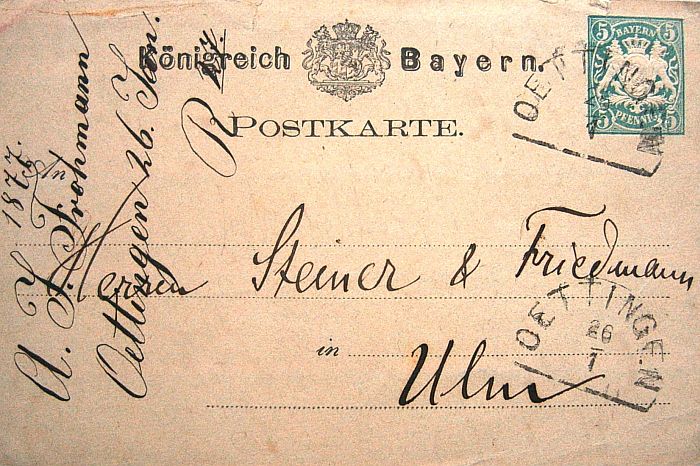 Königreich Bayern.
POSTKARTE.
5 BAYERN 5
5 PFENNIG 5
OETTINGEN
An
Herren Steiner & Friedmann
in Ulm
OETTINGEN
26
1
1877.
A. J. Frohmann
Oettingen 26. Jan.
R